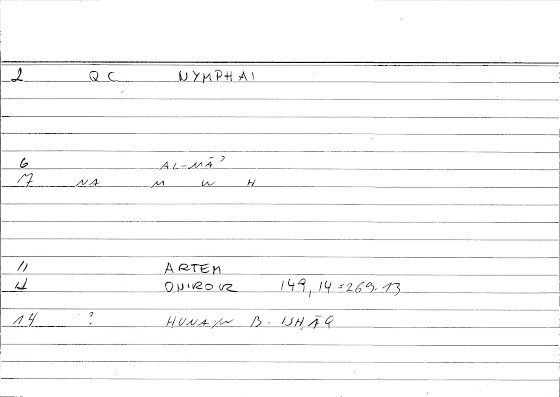 2 QC NYMPHAI
6 AL-MĀʾ
17 NA M W H
11 ARTEM
12 ONIROCR 149,14=269.13
14 ? HUNAYN B. ISḤĀQ